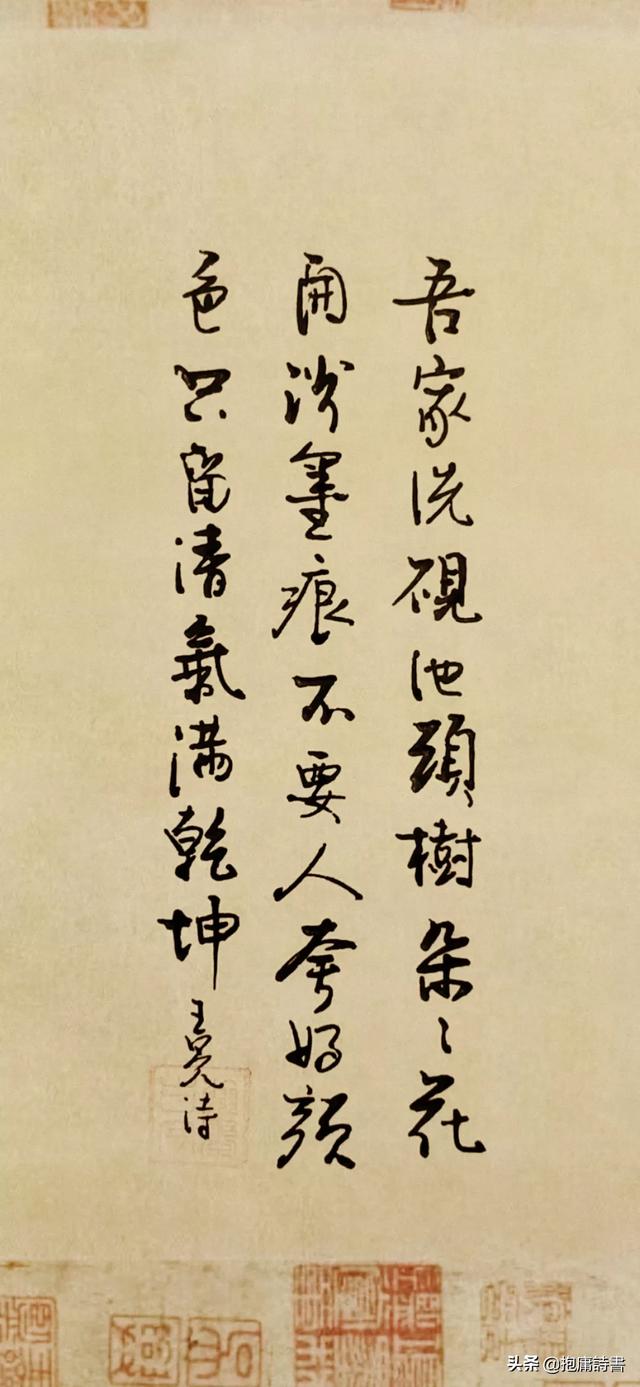 吾家洗硯池頭樹朵〻花
開淡墨痕不要人夸好顔
色只留清氣滿乾坤
王冕詩
头条 @抱庸詩書